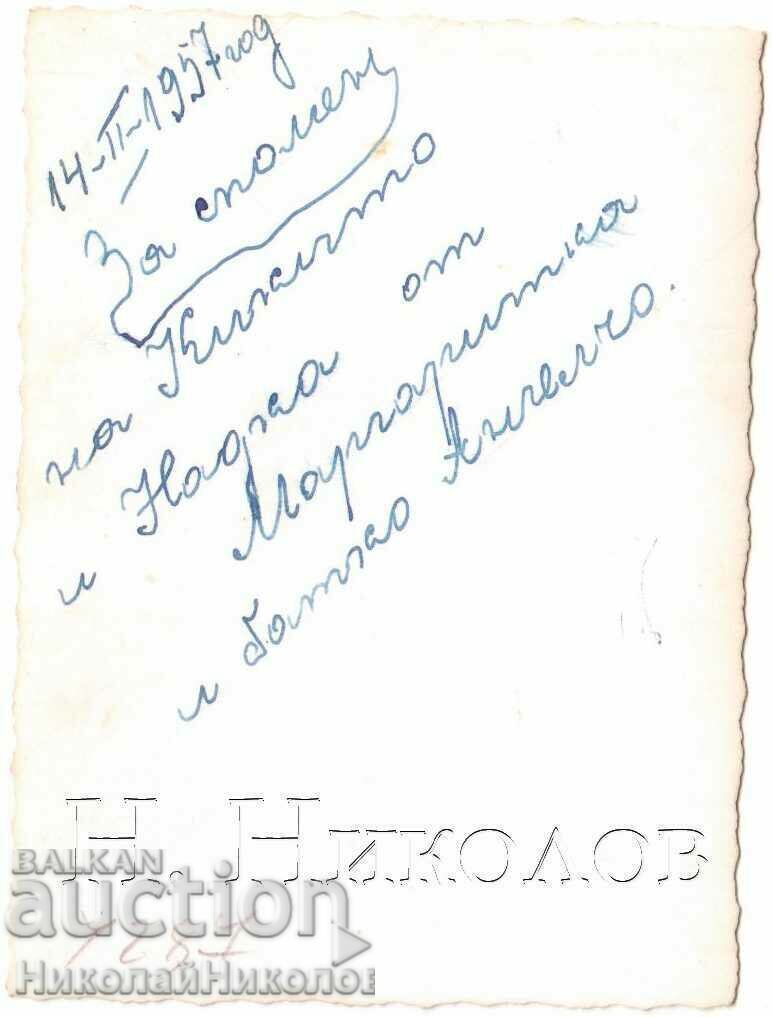 14-II-1957 год
За спомен
на
и Надка от
Маргаритка
и батко Ангелчо.
Н. Николов
BALKAN
auction
1287
НиколайНиколов